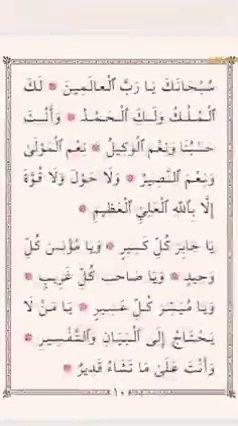 سُبْحَانَكَ يَا رَبَّ الْعَالَمِينَ ۞ لَكَ
الْمُلْكُ وَلَكَ الْحَمْدُ ۞ وَأَنْتَ
حَسْبُنَا وَنِعْمَ الْوَكِيلُ ۞ نِعْمَ الْمَوْلَى
وَنِعْمَ النَّصِيرُ ۞ وَلَا حَوْلَ وَلَا قُوَّةَ
إِلَّا بِاللَّهِ الْعَلِيِّ الْعَظِيمِ ۞
يَا جَابِرَ كُلِّ كَسِيرٍ ۞ وَيَا مُؤْنِسَ كُلِّ
وَحِيدٍ ۞ وَيَا صَاحِبَ كُلِّ غَرِيبٍ ۞
وَيَا مُيَسِّرَ كُلِّ عَسِيرٍ ۞ يَا مَنْ لَا
يَحْتَاجُ إِلَى الْبَيَانِ وَالتَّفْسِيرِ ۞
وَأَنْتَ عَلَى مَا تَشَاءُ قَدِيرٌ ۞